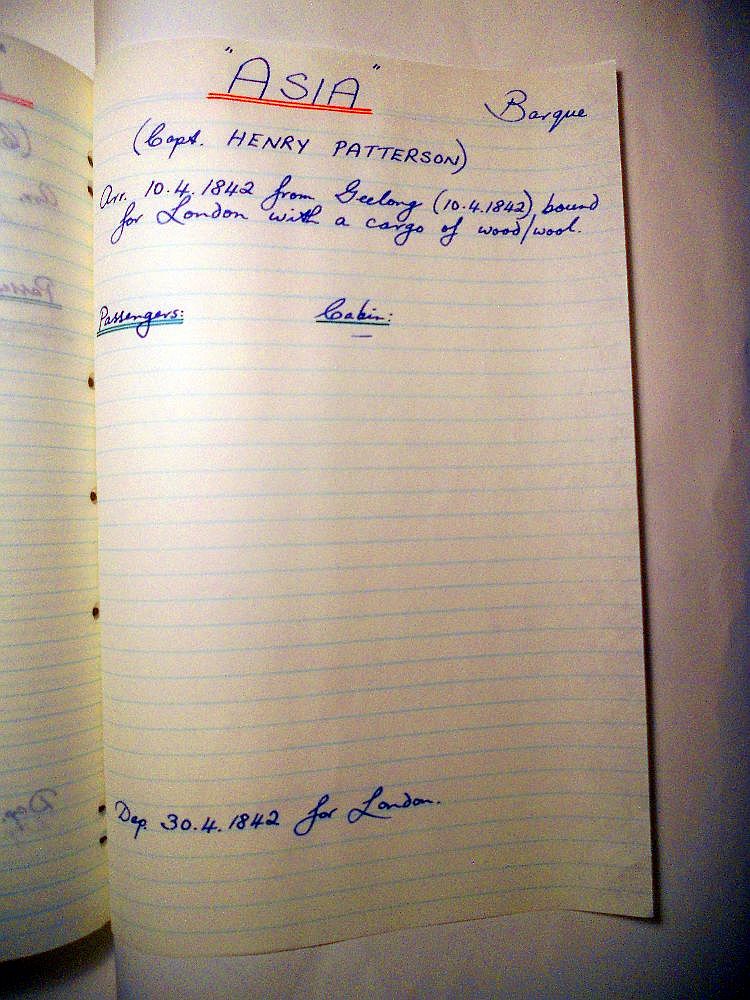 "ASIA"
Barque
(Capt. HENRY PATTERSON)
Arr. 10.4.1842 from Geelong (10.4.1842) bound
for London with a cargo of wood/wool.
Passengers: Cabin:
—
Dep. 30.4.1842 for London.
Dep.